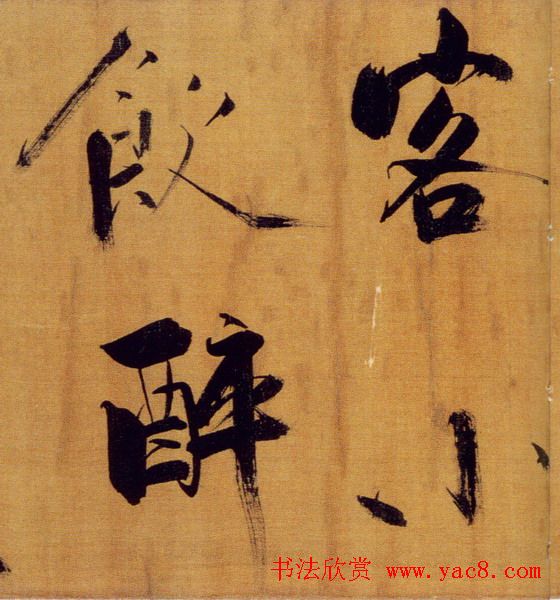 客小
飲醉
书法欣赏 www.yac8.com